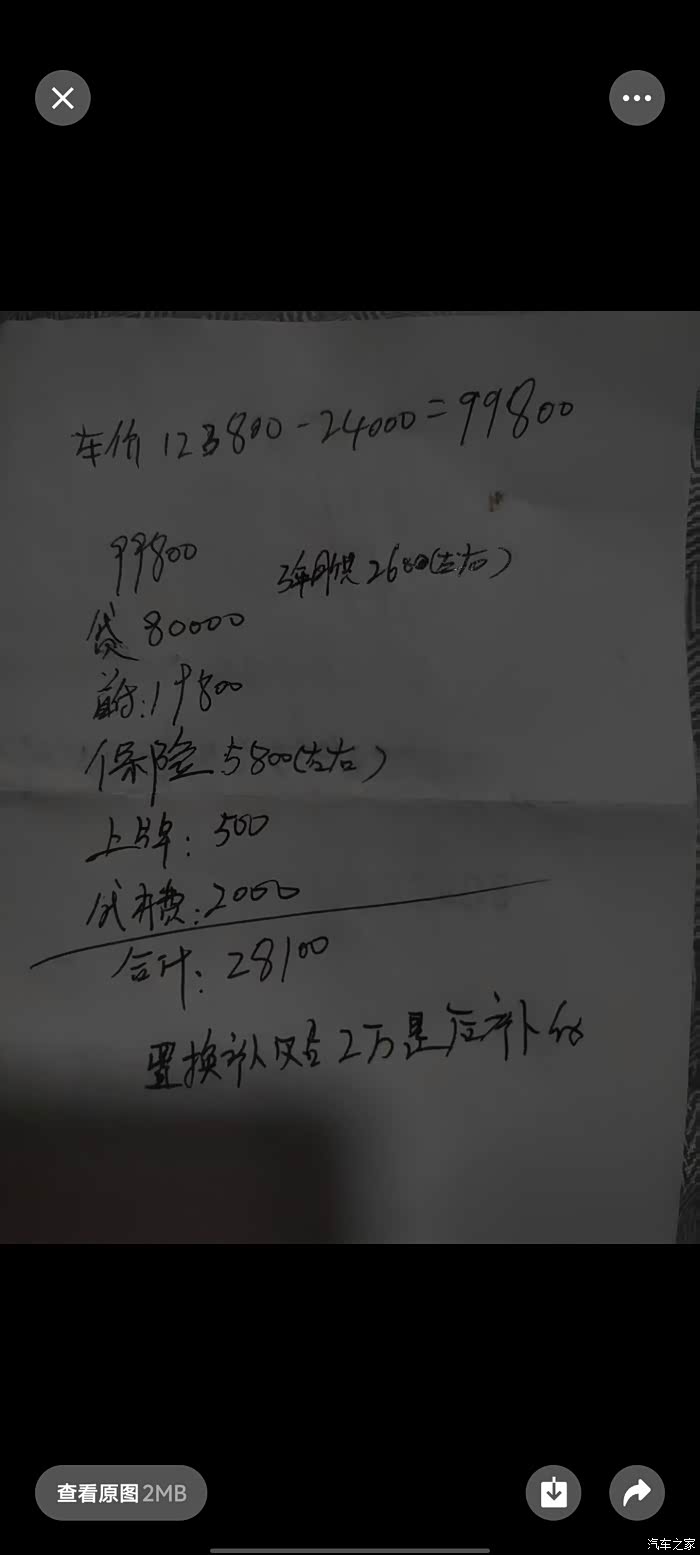 车价 123800-24000=99800
99800
3年月供2680(左右)
贷 80000
首付:19800
保险 5800(左右)
上牌:500
成本费:2000
合计:28100
置换补贴 2万是后补的
查看原图2MB
汽车之家